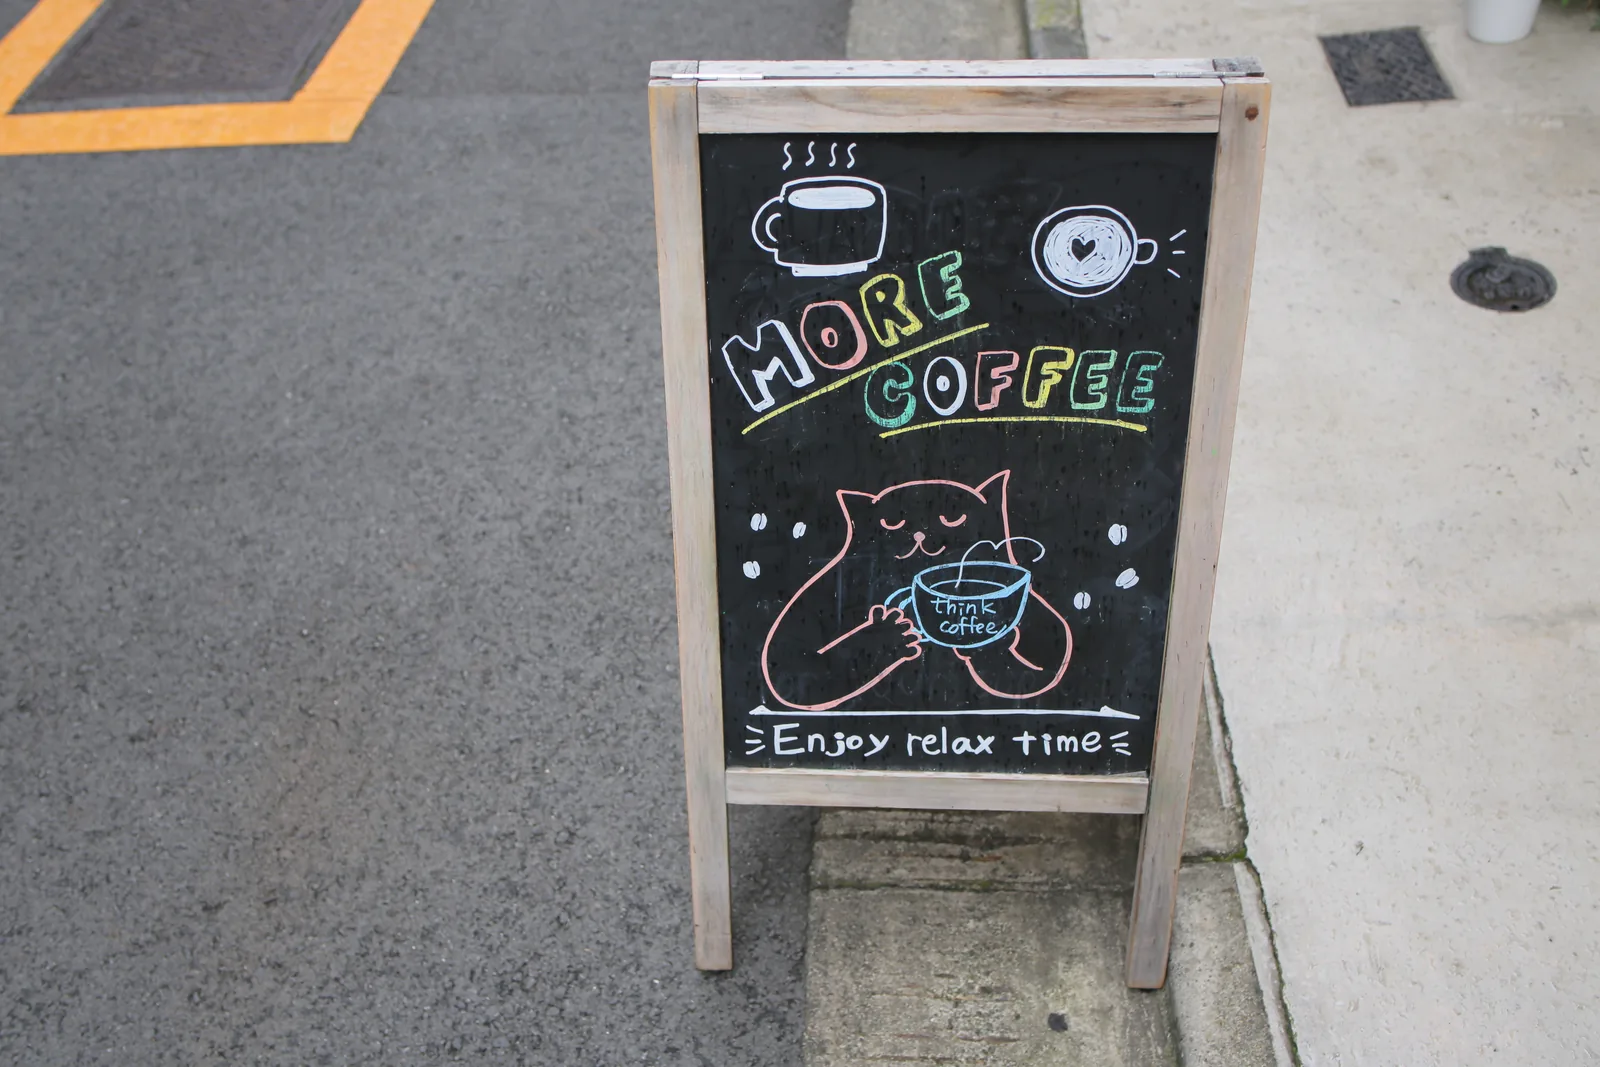 MORE
COFFEE
think
coffee
Enjoy relax time